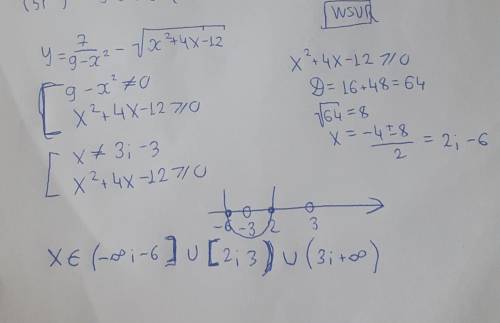 WSUR
y = 7/(9-x²) - √(x²+4x-12)
[ 9-x² ≠ 0
x²+4x-12 ⩾ 0
[ x ≠ 3; -3
x²+4x-12 ⩾ 0
x²+4x-12 ⩾ 0
D = 16+48 = 64
√64 = 8
x = (-4±8)/2 = 2; -6
-6 -3 2 3
x ∈ (-∞; -6] ∪ [2; 3) ∪ (3; +∞)